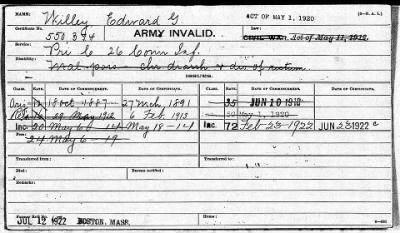 NAME Willey Edward G ACT OF MAY 1, 1920 (3-2 A. L.)
Certificate No. 550.394 ARMY INVALID. CIVIL WAR. Act of May 11, 1912.
Service: Pri C 26 Conn Inf.
Disability: Mal. pois chr diarrh & dis of rectum
RATE. COMMENCEMENT. DATE OF CERTIFICATE. RATE. COMMENCEMENT. DATE OF CERTIFICATE.
Orig 12 18 Oct 1887 27 Mch 1891 35 JUN 10 1918
16 29 May 1912 6 Feb 1913 50 May 1, 1920
Inc 20 May 6 - 14 May 18-14 Inc 72 Feb 23-1922 JUN 23 1922 c
24 May 6 - 19
Transferred to: Transferred to:
Transferred from: Transferred from:
Died: Reported:
Remarks:
JUL 12 1922 BOSTON, MASS.